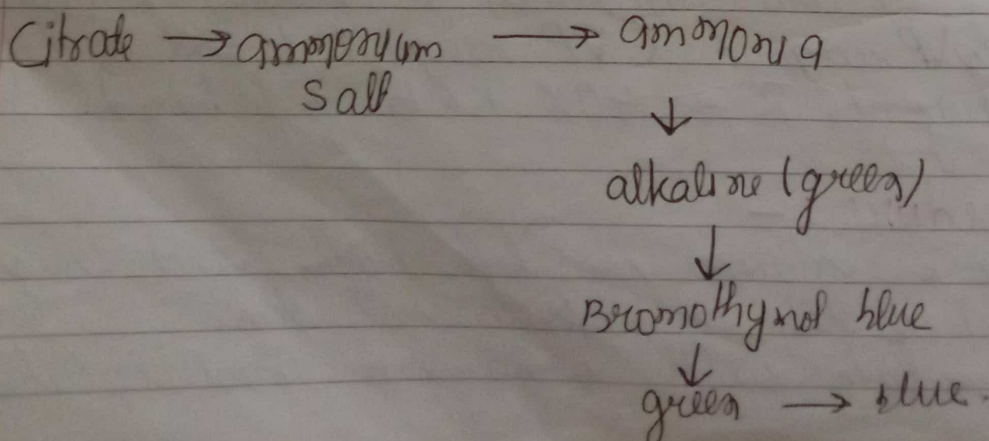 Citrate → ammonium → ammonia
salt
↓
alkaline (green)
↓
Bromothymol blue
↓
green → blue.